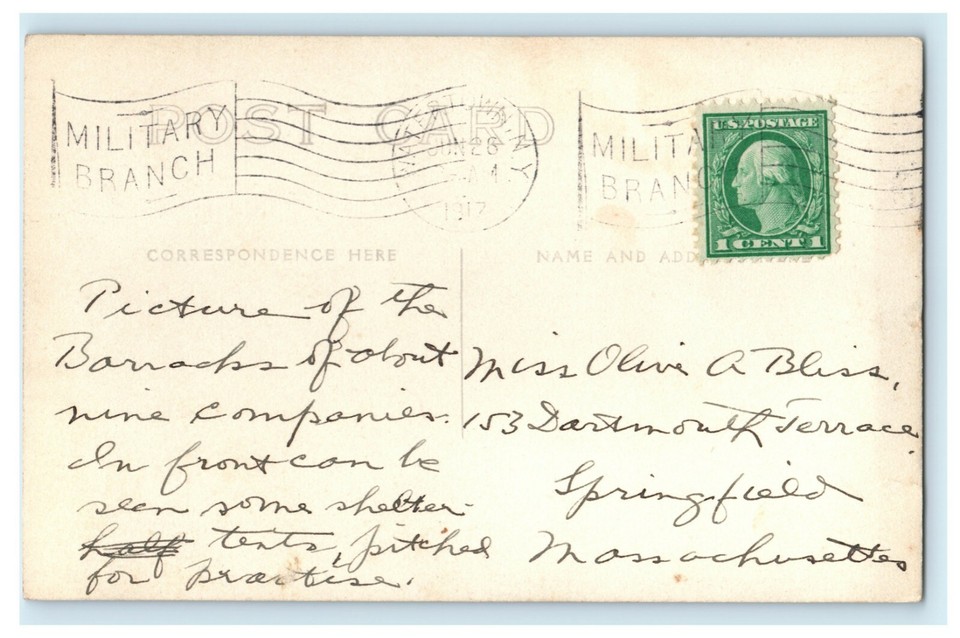 POST CARD
MILITARY
BRANCH
JUN 28
AM
1917
MILITA
BRANC
U.S. POSTAGE
1 CENT 1
CORRESPONDENCE HERE
NAME AND ADD
Picture of the
Barracks of about
nine companies.
In front can be
seen some shelter-
half tents, pitched
for practise.
Miss Olive A Bliss,
153 Dartmouth Terrace
Springfield
Massachusettes